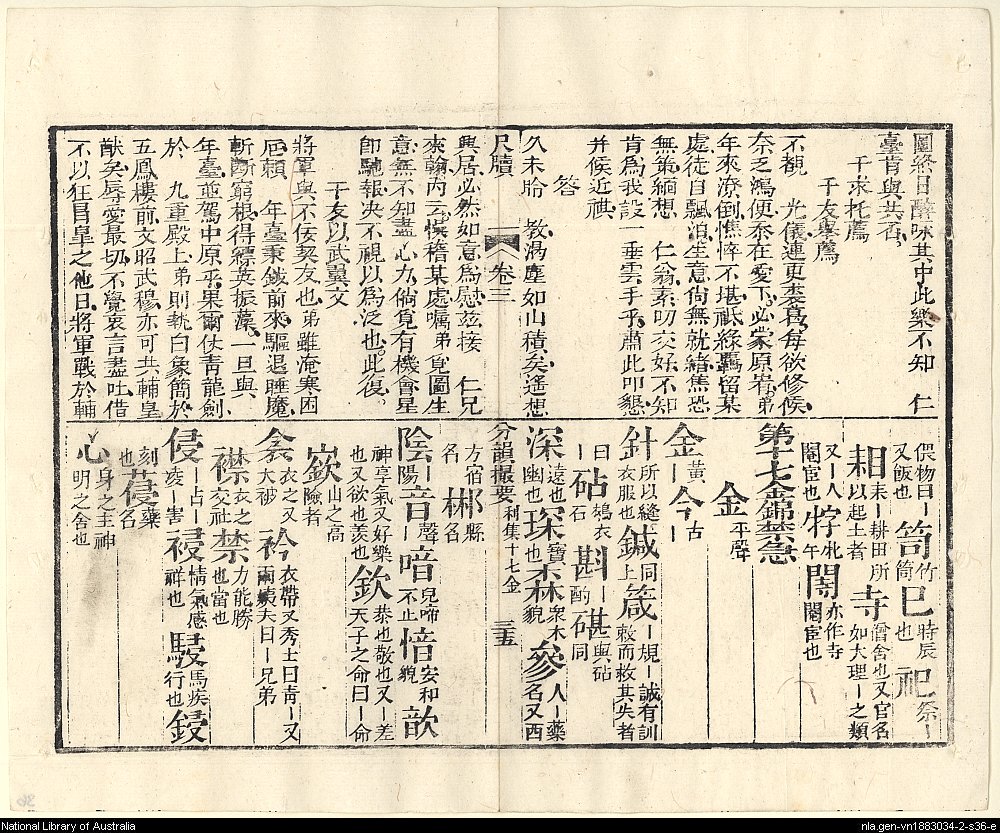 圖終日醉咏其中此樂不知　仁
臺肯與共否
干求托薦
干友舉薦
不覩　光儀連更裘葛每欲修候
奈乏鴻便泰在愛下必蒙原宥弟
年來潦倒憔悴不堪祗緣羈留某
處徒自飄泊生意尙無就緒焦恐
無策緬想　仁翁素叨交好不知
肯爲我設一垂雲手乎肅此叩懇
并候近祺
答
久未聆　敎渴塵如山積矣遙想
尺牘　卷三
興居必然如意爲慰茲接　仁兄
來翰內云懊稽某處囑弟覓圖生
意無不知盡心力倘覓有機會星
卽馳報决不視以爲泛也此復
干友以武翼文
將軍與不佞契友也弟雖淹寒困
厄頼　年臺秉鉞前來驅退睡魔
斬斷窮根得縹英振藻一旦與
年臺並駕中原乎果爾仗靑龍劍
於　九重殿上弟則執白象簡於
五鳳樓前文昭武穆亦可共輔皇
猷矣辱愛最切不覺衷言盡吐借
不以狂冒皐之他日將軍戰於輔
俱物曰ー又飯也　笥竹筒也　巳時辰　祀祭ー
耜耒ー耕田所以起土者　寺僧舍也又官名如大理ー之類
又ー人閹宦也　牸牝牛　閽亦作寺閹宦也
第十七金錦禁急
金平聲
金黃ー　今古ー
針所以縫衣服也　鍼同上　箴ー規ー誡有訓敎而救其失者
曰ー　砧鵚衣ー石　斟ー酌　椹與砧同
深遠也幽也　琛寶也　森衆木貌　參人ー藥名又西
分韻撮要　利集十七金　三五
方宿名　郴縣名
陰ー陽　音聲ー　喑兒啼不止　愔安和貌　歆
神享氣又好樂也又欲也羡也　欽恭也敬也又ー差天子之命曰ー命
嶔山之高險者
衾衣之又大被　衿衣帶又秀士曰靑ー又兩姨夫曰ー兄弟
襟衣之交衽　禁力能勝也當也
侵ー占ー凌ー害　祲情氣感祥也　駸馬疾行也　鋟
刻也　葠藥名
心身之主神明之舍也
National Library of Australia
nla.gen-vn1883034-2-s36-e